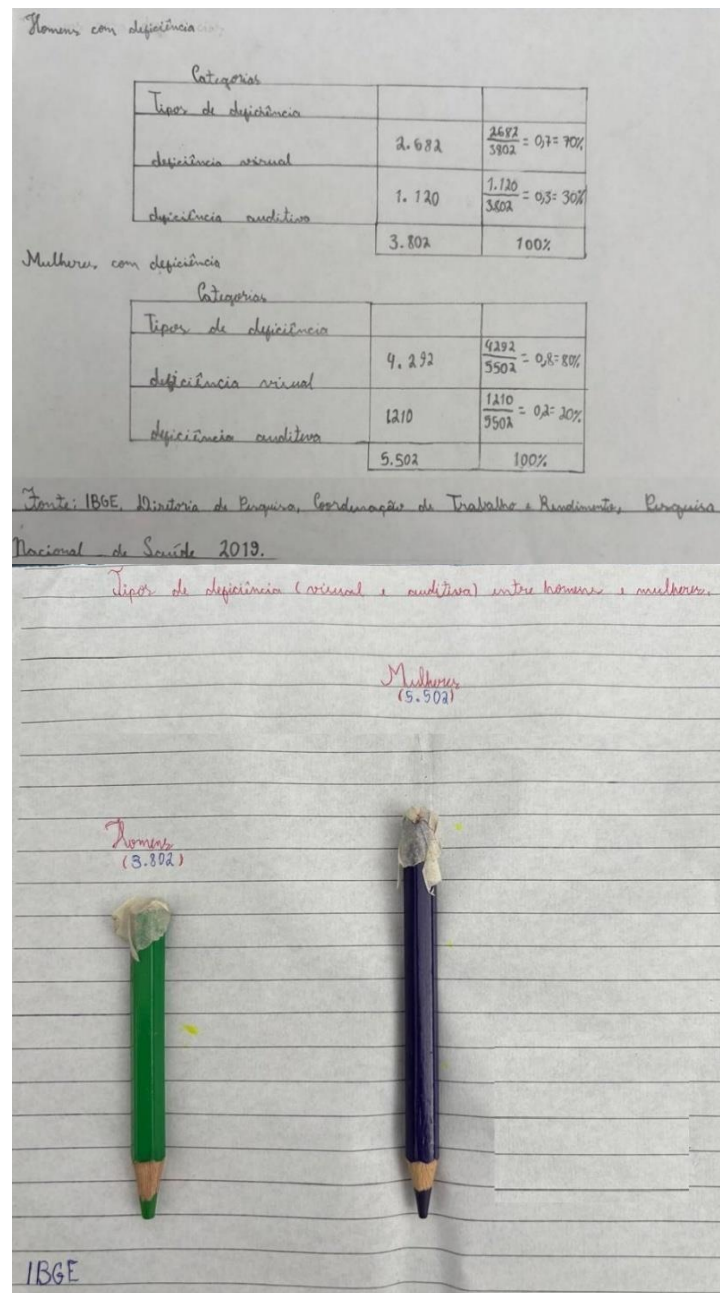 Homens com deficiência
Categorias
Tipos de deficiência
deficiência visual 2.682 2682/3802 = 0,7= 70%
deficiência auditiva 1.120 1.120/3.802 = 0,3= 30%
3.802 100%
Mulheres com deficiência
Categorias
Tipos de deficiência
deficiência visual 4.292 4292/5502 = 0,8=80%
deficiência auditiva 1210 1210/5502 = 0,2= 20%
5.502 100%
Fonte: IBGE, Diretoria de Pesquisa, Coordenação de Trabalho e Rendimento, Pesquisa
Nacional de Saúde 2019.
Tipos de deficiência (visual e auditiva) entre homens e mulheres.
Mulheres
(5.502)
Homens
(3.802)
IBGE